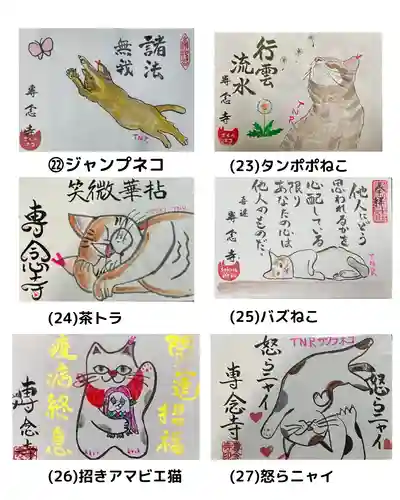 諸法
無我
専念寺
TNR
㉒ジャンプネコ
行雲
流水
専念寺
TNR
(23)タンポポねこ
笑微華拈
専念寺
(24)茶トラ
奉拝
他人にどう
思われるかを
心配している
限り
あなたの心は
他人のものだ。
専念寺
TNR
(25)バズねこ
開運招福
疫病終息
専念寺
(26)招きアマビエ猫
TNRサクラネコ
怒らニャイ
怒らニャイ
専念寺
(27)怒らニャイ